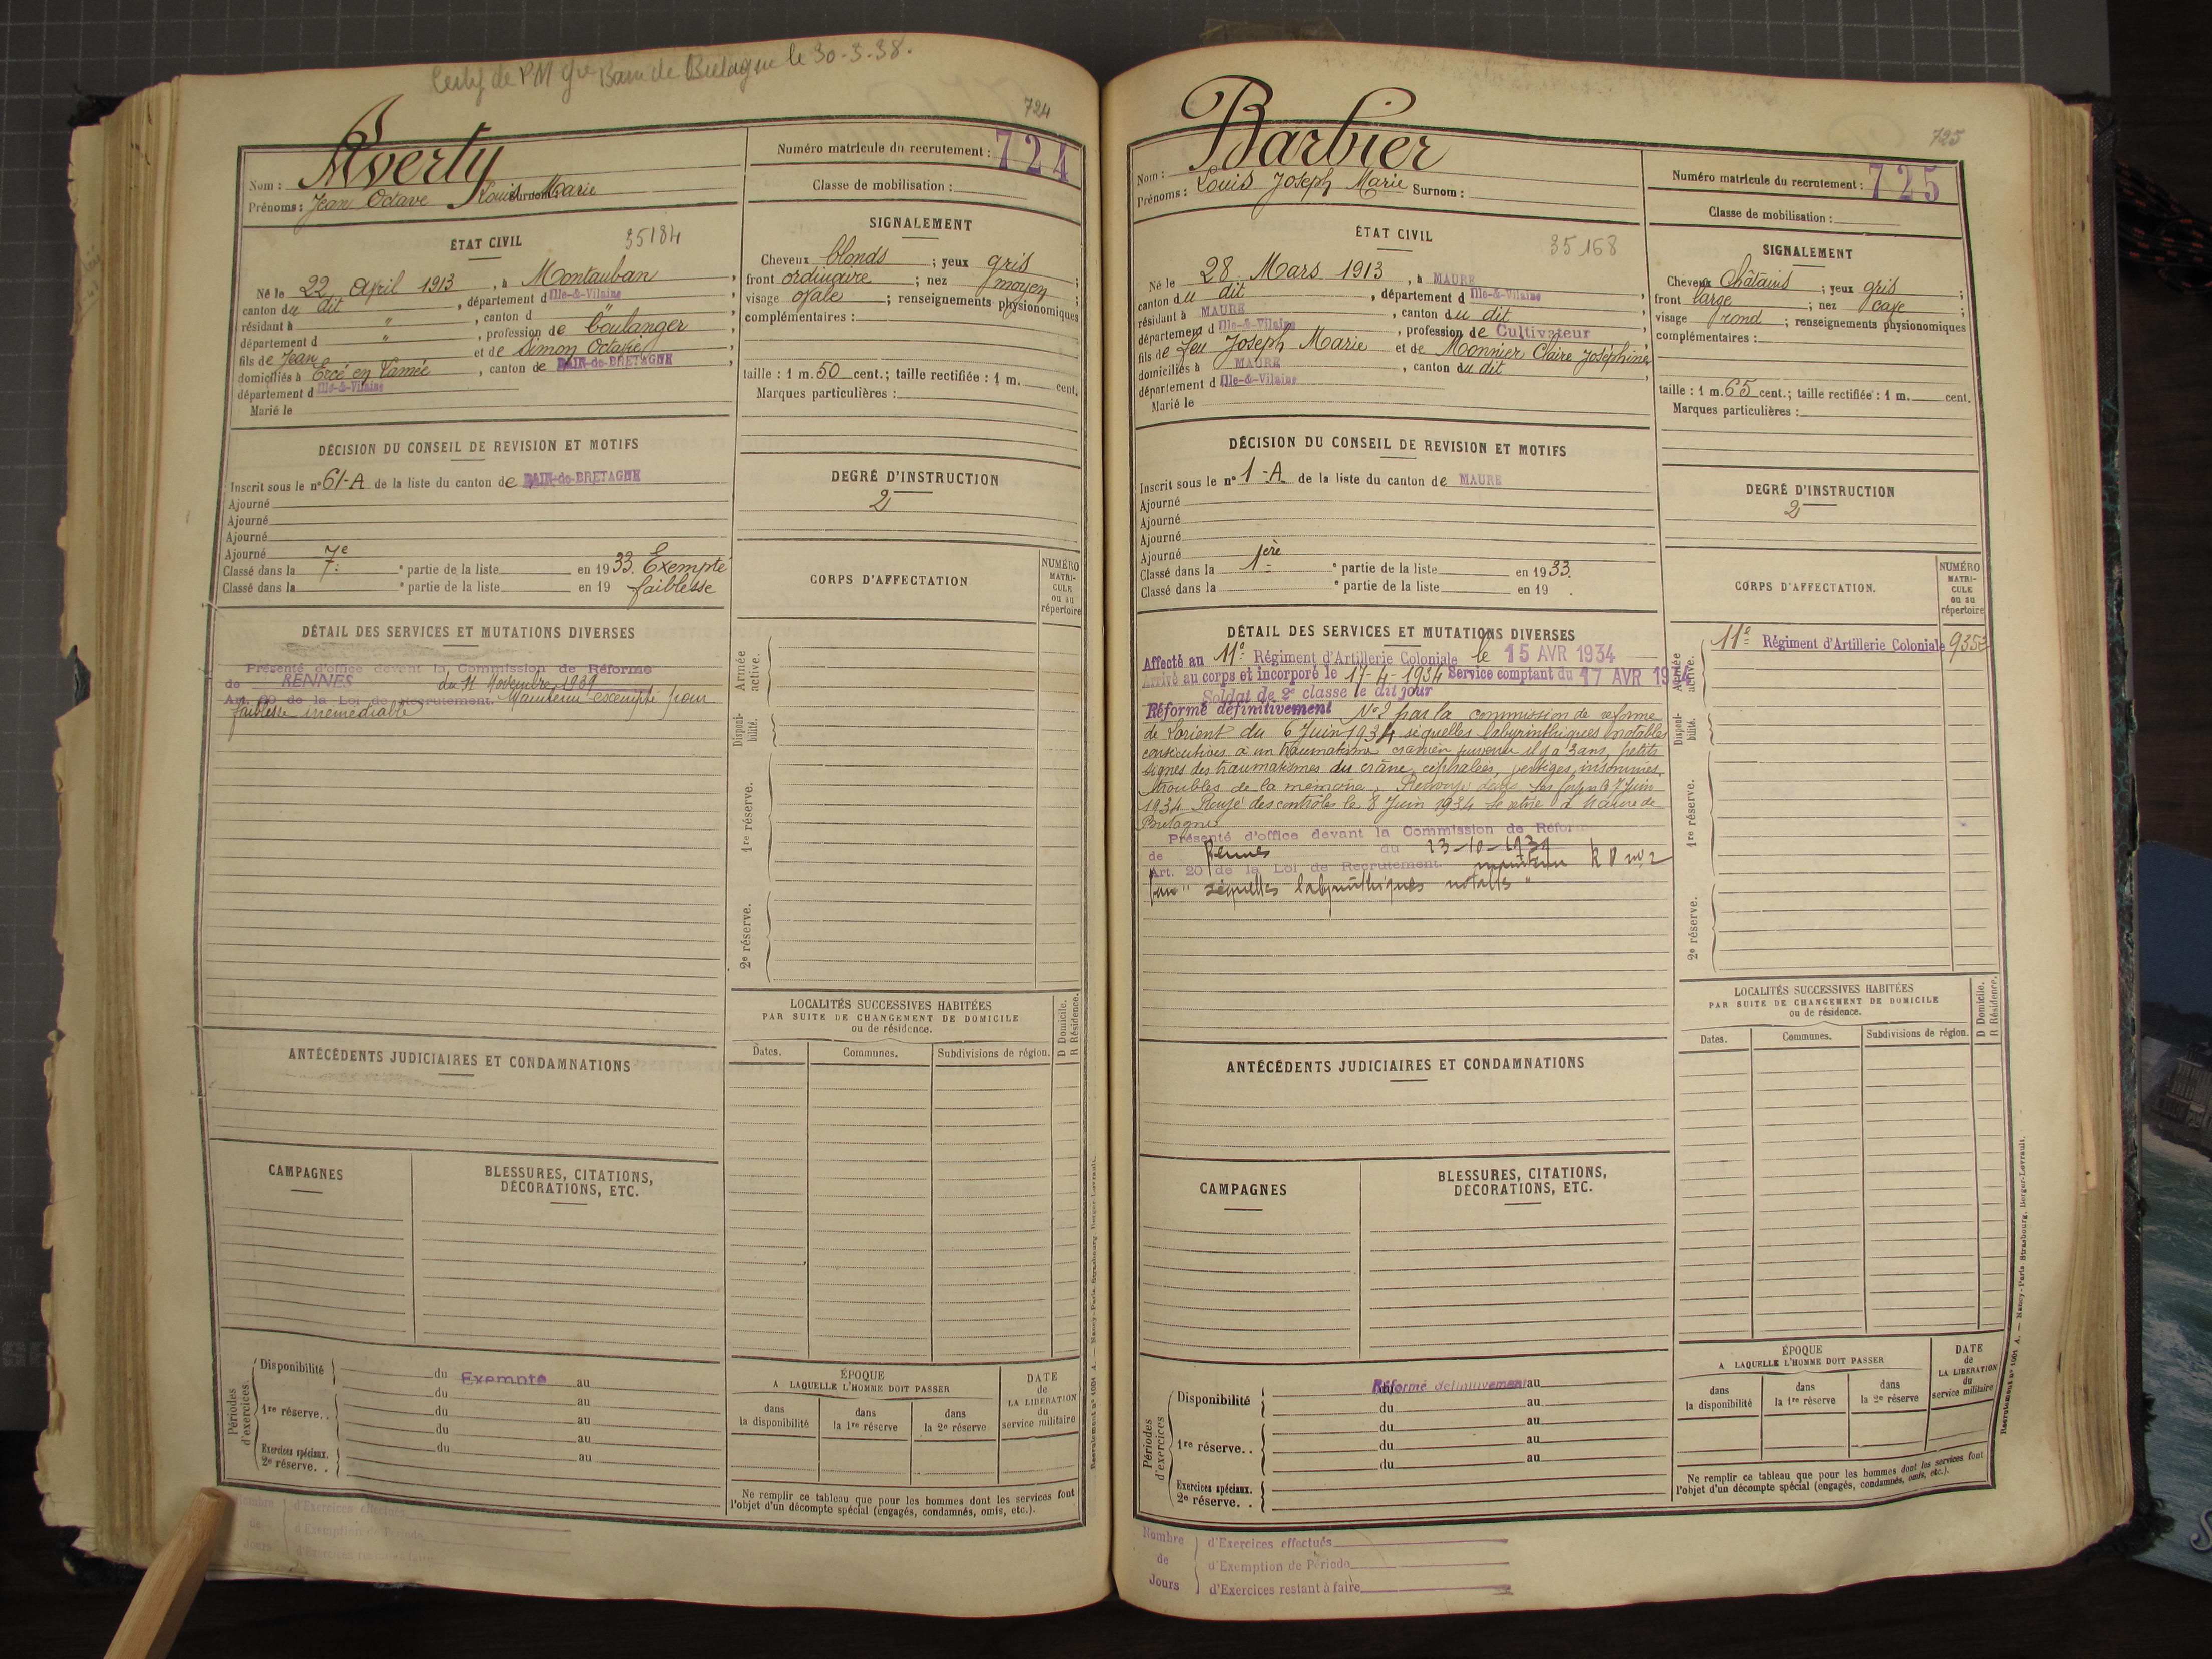 Certif de P M Gie Bain de Bretagne le 30-3-38.
724
Averty
Nom :
Prénoms : Jean Octave Louis Marie
Surnom :
Numéro matricule du recrutement : 724
Classe de mobilisation :
ÉTAT CIVIL 35184
Né le 22 Avril 1913, à Montauban,
canton du dit, département d Ille-&-Vilaine
résidant à ", canton d "
département d ", profession de boulanger,
fils de Jean et de Simon Octavie,
domiciliés à Ercé en Lamée, canton de BAIN-de-BRETAGNE,
département d Ille-&-Vilaine
Marié le
SIGNALEMENT
Cheveux blonds ; yeux gris ;
front ordinaire ; nez moyen ;
visage ovale ; renseignements physionomiques
complémentaires :
taille : 1 m. 50 cent.; taille rectifiée : 1 m. cent.
Marques particulières :
DÉCISION DU CONSEIL DE REVISION ET MOTIFS
Inscrit sous le n° 61-A de la liste du canton de BAIN-de-BRETAGNE
Ajourné
Ajourné
Ajourné
Ajourné 7e
Classé dans la 7. e partie de la liste en 1933. Exempté
Classé dans la e partie de la liste en 19 faiblesse
DEGRÉ D'INSTRUCTION
2
CORPS D'AFFECTATION
NUMÉRO
MATRI-
CULE
ou au
répertoire
DÉTAIL DES SERVICES ET MUTATIONS DIVERSES
Présenté d'office devant la Commission de Réforme
de RENNES du 11 Novembre 1939
Art. 20 de la Loi de Recrutement. Maintenu exempté pour
faiblesse irrémédiable
Armée
active.
Disponi-
bilité.
1re réserve.
2e réserve.
LOCALITÉS SUCCESSIVES HABITÉES
PAR SUITE DE CHANGEMENT DE DOMICILE
ou de résidence.
D Domicile.
R Résidence.
Dates. Communes. Subdivisions de région.
ANTÉCÉDENTS JUDICIAIRES ET CONDAMNATIONS
CAMPAGNES
BLESSURES, CITATIONS,
DÉCORATIONS, ETC.
Périodes
d'exercices.
Disponibilité du Exempté au
du au
1re réserve. . du au
du au
Exercices spéciaux. du au
2e réserve. .
ÉPOQUE
A LAQUELLE L'HOMME DOIT PASSER
dans
la disponibilité
dans
la 1re réserve
dans
la 2e réserve
DATE
de
LA LIBERATION
du
service militaire
Ne remplir ce tableau que pour les hommes dont les services font
l'objet d'un décompte spécial (engagés, condamnés, omis, etc.).
Nombre d'Exercices effectués
de d'Exemption de Période
Jours d'Exercices restant à faire
Recrutement n° 1001 A. — Nancy-Paris-Strasbourg, Berger-Levrault.
725
Barbier
Nom :
Prénoms : Louis Joseph Marie Surnom :
Numéro matricule du recrutement : 725
Classe de mobilisation :
ÉTAT CIVIL 35168
Né le 28 Mars 1913, à MAURE
canton du dit, département d Ille-&-Vilaine
résidant à MAURE, canton du dit,
département d Ille-&-Vilaine, profession de Cultivateur
fils de feu Joseph Marie et de Monnier Claire Joséphine,
domiciliés à MAURE, canton du dit,
département d Ille-&-Vilaine
Marié le
SIGNALEMENT
Cheveux Châtains ; yeux gris ;
front large ; nez cave ;
visage rond ; renseignements physionomiques
complémentaires :
taille : 1 m. 65 cent.; taille rectifiée : 1 m. cent.
Marques particulières :
DÉCISION DU CONSEIL DE REVISION ET MOTIFS
Inscrit sous le n° 1-A de la liste du canton de MAURE
Ajourné
Ajourné
Ajourné
Ajourné 1ère
Classé dans la 1ère e partie de la liste en 1933.
Classé dans la e partie de la liste en 19 .
DEGRÉ D'INSTRUCTION
2
CORPS D'AFFECTATION.
NUMÉRO
MATRI-
CULE
ou au
répertoire
11e Régiment d'Artillerie Coloniale 9353
DÉTAIL DES SERVICES ET MUTATIONS DIVERSES
Affecté au 11e Régiment d'Artillerie Coloniale le 15 AVR 1934
Arrivé au corps et incorporé le 17-4-1934 Service comptant du 17 AVR 1934
Soldat de 2e classe le dit jour
Réformé définitivement N°2 par la commission de réforme
de Lorient du 6 Juin 1934 séquelles labyrinthiques notables
consécutives à un traumatisme crânien survenu il y a 3 ans, petits
signes des traumatismes du crâne, céphalées, vertiges, insomnies,
troubles de la mémoire. Renvoyé dans ses foyers le 7 Juin
1934 Rayé des contrôles le 8 Juin 1934 se retire à Maure de
Bretagne
Présenté d'office devant la Commission de Réforme
de Rennes du 23-10-1939
Art. 20 de la Loi de Recrutement. maintenu R D n° 2
pour "séquelles labyrinthiques notables"
Armée
active.
Disponi-
bilité.
1re réserve.
2e réserve.
LOCALITÉS SUCCESSIVES HABITÉES
PAR SUITE DE CHANGEMENT DE DOMICILE
ou de résidence.
D Domicile.
R Résidence.
Dates. Communes. Subdivisions de région.
ANTÉCÉDENTS JUDICIAIRES ET CONDAMNATIONS
CAMPAGNES
BLESSURES, CITATIONS,
DÉCORATIONS, ETC.
Périodes
d'exercices.
Disponibilité du Réformé définitivement au
du au
du au
1re réserve. . du au
du au
Exercices spéciaux.
2e réserve. .
ÉPOQUE
A LAQUELLE L'HOMME DOIT PASSER
dans
la disponibilité
dans
la 1re réserve
dans
la 2e réserve
DATE
de
LA LIBERATION
du
service militaire
Ne remplir ce tableau que pour les hommes dont les services font
l'objet d'un décompte spécial (engagés, condamnés, omis, etc.).
Nombre d'Exercices effectués
de d'Exemption de Période
Jours d'Exercices restant à faire
Recrutement n° 1001 A. — Nancy-Paris-Strasbourg, Berger-Levrault.